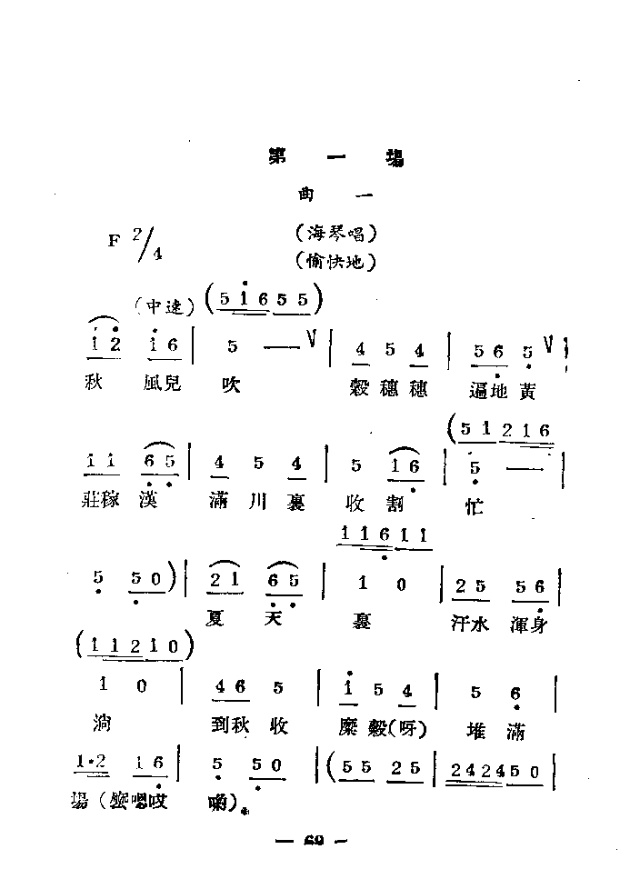 第一場
曲一
F 2/4
(海琴唱)
(愉快地)
(中速) (5 1 6 5 5)
1 2 1 6 | 5 — V | 4 5 4 | 5 6 5 V |
秋 風兒 吹 穀穗穗 遍地黃
(5 1 2 1 6
1 1 6 5 | 4 5 4 | 5 1 6 | 5 — |
莊稼漢 滿川裏 收割 忙
1 1 6 1 1
5 5 0) | 2 1 6 5 | 1 0 | 2 5 5 6 |
夏天裏 汗水渾身
(1 1 2 1 0)
1 0 | 4 6 5 | 1 5 4 | 5 6 |
淌 到秋收 糜穀(呀) 堆滿
1·2 1 6 | 5 5 0 | (5 5 2 5 | 2 4 2 4 5 0 |
場(嗯哎喲)。
— 69 —